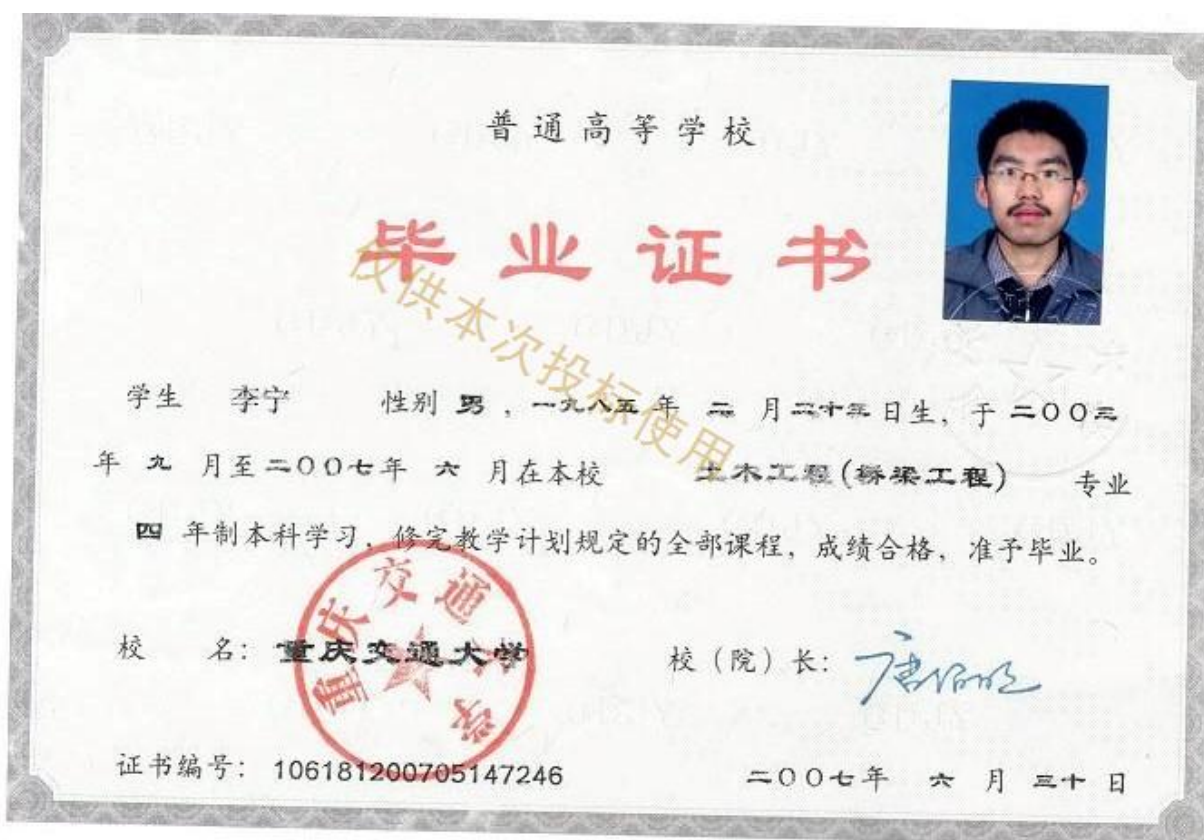 普通高等学校
毕业证书
仅供本次投标使用
学生 李宁 性别 男，一九八五年 二 月二十三日生，于二〇〇三
年 九 月至二〇〇七年 六 月在本校 土木工程(桥梁工程) 专业
四 年制本科学习，修完教学计划规定的全部课程，成绩合格，准予毕业。
重庆交通大学
校 名：重庆交通大学 校（院）长：唐伯明
证书编号：106181200705147246 二〇〇七年 六 月 三十 日